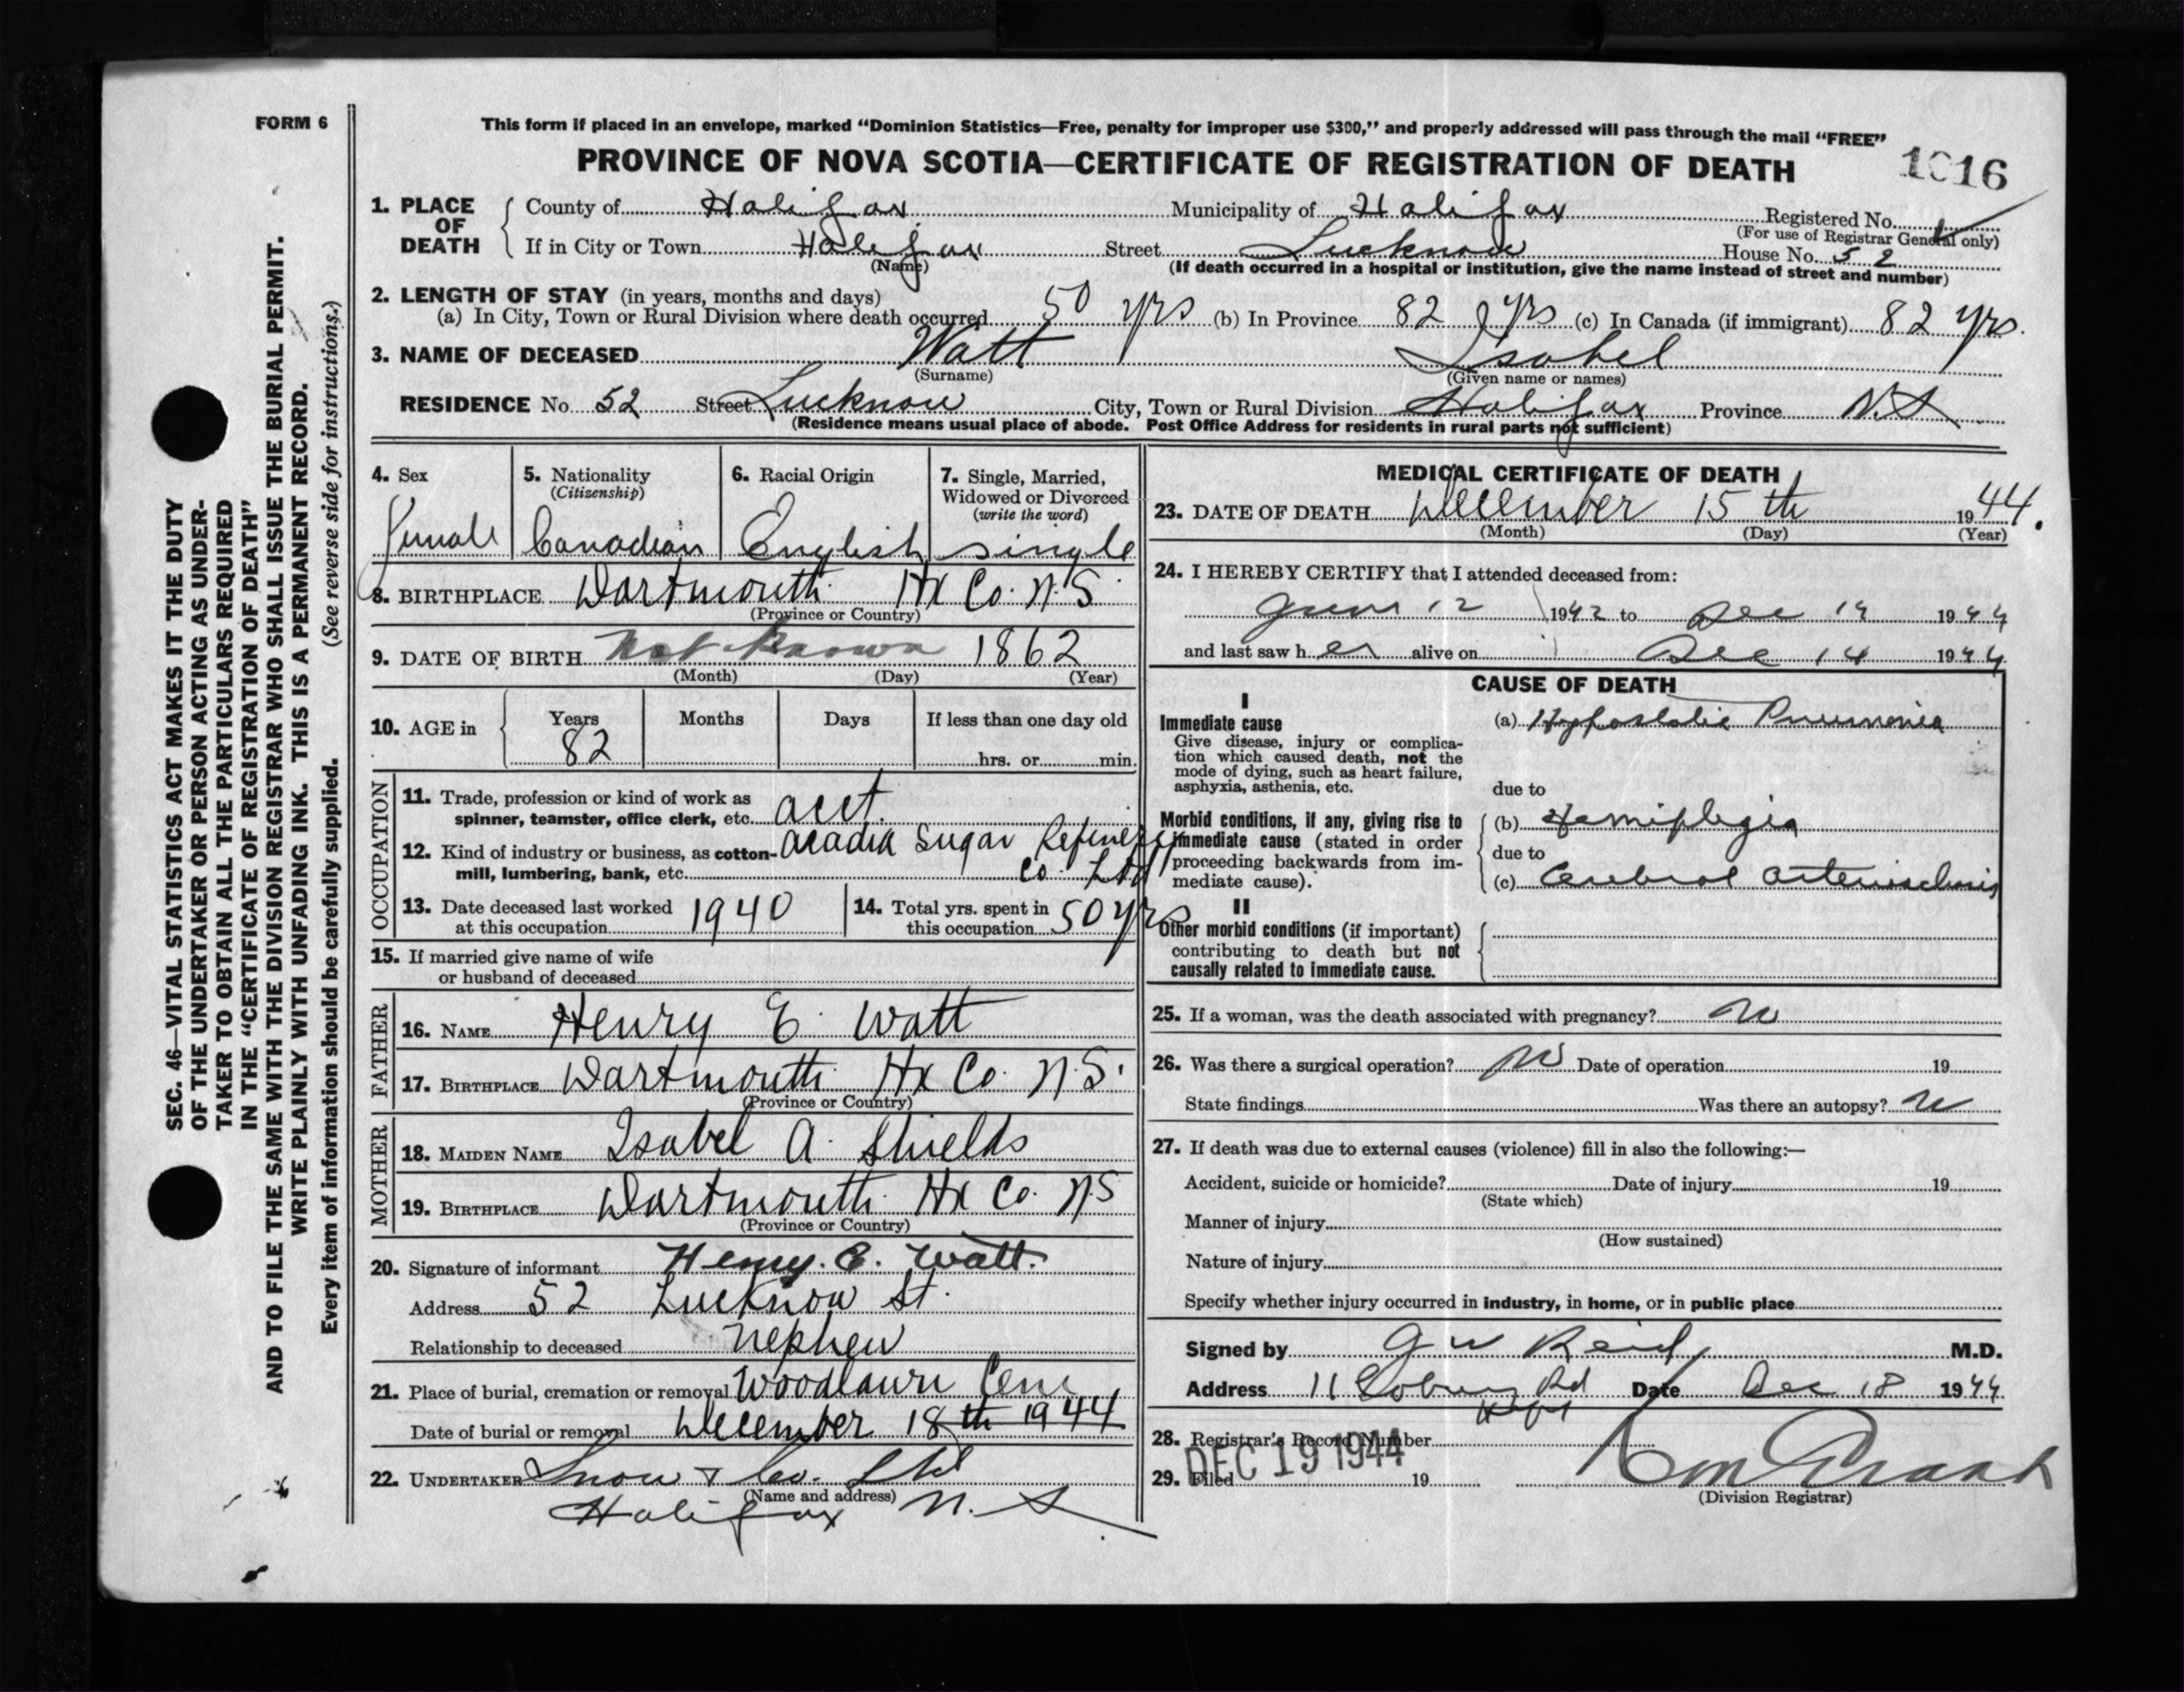 FORM 6
This form if placed in an envelope, marked “Dominion Statistics—Free, penalty for improper use $300,” and properly addressed will pass through the mail “FREE”
PROVINCE OF NOVA SCOTIA—CERTIFICATE OF REGISTRATION OF DEATH
1016
1. PLACE OF DEATH
County of Halifax Municipality of Halifax Registered No.
(For use of Registrar General only)
If in City or Town Halifax Street Lucknow House No. 52
(Name) (If death occurred in a hospital or institution, give the name instead of street and number)
2. LENGTH OF STAY (in years, months and days)
(a) In City, Town or Rural Division where death occurred 50 yrs (b) In Province 82 yrs (c) In Canada (if immigrant) 82 yrs.
3. NAME OF DECEASED Watt Isabel
(Surname) (Given name or names)
RESIDENCE No 52 Street Lucknow City, Town or Rural Division Halifax Province N.S
(Residence means usual place of abode. Post Office Address for residents in rural parts not sufficient)
4. Sex
Female
5. Nationality
(Citizenship)
Canadian
6. Racial Origin
English
7. Single, Married,
Widowed or Divorced
(write the word)
single
8. BIRTHPLACE Dartmouth Hx Co. N.S.
(Province or Country)
9. DATE OF BIRTH Not Known 1862
(Month) (Day) (Year)
10. AGE in
Years Months Days If less than one day old
82 hrs. or min.
OCCUPATION
11. Trade, profession or kind of work as
spinner, teamster, office clerk, etc. acct.
12. Kind of industry or business, as cotton- Acadia Sugar Refinery
mill, lumbering, bank, etc. Co. Ltd
13. Date deceased last worked
at this occupation 1940
14. Total yrs. spent in
this occupation 50 yrs
15. If married give name of wife
or husband of deceased
FATHER
16. NAME Henry E. Watt
17. BIRTHPLACE Dartmouth Hx Co. N.S.
(Province or Country)
MOTHER
18. MAIDEN NAME Isabel A. Shields
19. BIRTHPLACE Dartmouth Hx Co. N.S
(Province or Country)
20. Signature of informant Henry. E. Watt.
Address 52 Lucknow St.
Relationship to deceased nephew
21. Place of burial, cremation or removal Woodlawn Cem
Date of burial or removal December 18th 1944
22. UNDERTAKER Snow & Co. Ltd
(Name and address)
Halifax N.S
MEDICAL CERTIFICATE OF DEATH
23. DATE OF DEATH December 15th 1944.
(Month) (Day) (Year)
24. I HEREBY CERTIFY that I attended deceased from:
June 12 1942 to Dec 14 1944
and last saw her alive on Dec 14 1944
CAUSE OF DEATH
I
Immediate cause
Give disease, injury or complica-
tion which caused death, not the
mode of dying, such as heart failure,
asphyxia, asthenia, etc.
(a) Hypostatic Pneumonia
due to
Morbid conditions, if any, giving rise to
immediate cause (stated in order
proceeding backwards from im-
mediate cause).
(b) Hemiplegia
due to
(c) Cerebral arteriosclerosis
II
Other morbid conditions (if important)
contributing to death but not
causally related to immediate cause.
25. If a woman, was the death associated with pregnancy? No
26. Was there a surgical operation? No Date of operation 19
State findings Was there an autopsy? No
27. If death was due to external causes (violence) fill in also the following:—
Accident, suicide or homicide? Date of injury 19
(State which)
Manner of injury
(How sustained)
Nature of injury
Specify whether injury occurred in industry, in home, or in public place
Signed by G W Reid M.D.
Address 11 Coburg Rd Date Dec 18 1944
Hfx
28. Registrar's Record Number
DEC 19 1944
29. Filed 19
(Division Registrar)
SEC. 46—VITAL STATISTICS ACT MAKES IT THE DUTY
OF THE UNDERTAKER OR PERSON ACTING AS UNDER-
TAKER TO OBTAIN ALL THE PARTICULARS REQUIRED
IN THE “CERTIFICATE OF REGISTRATION OF DEATH”
AND TO FILE THE SAME WITH THE DIVISION REGISTRAR WHO SHALL ISSUE THE BURIAL PERMIT.
WRITE PLAINLY WITH UNFADING INK. THIS IS A PERMANENT RECORD.
Every item of information should be carefully supplied. (See reverse side for instructions.)